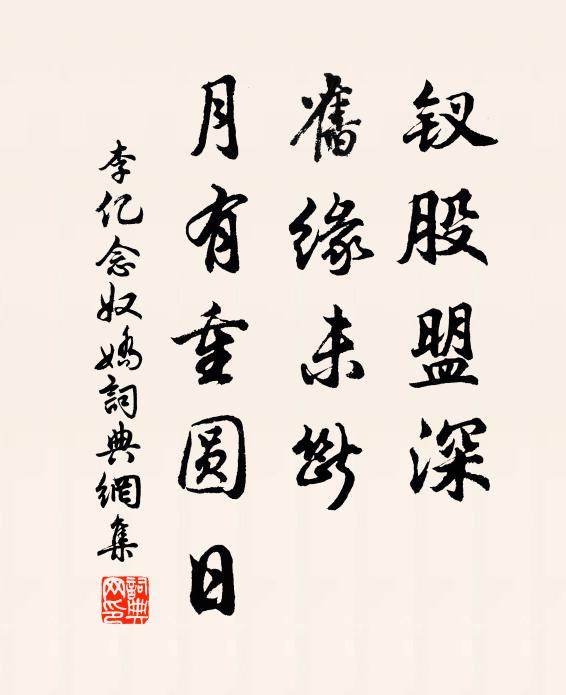 钗股盟深
舊緣未斷
月有重圆日
李亿念奴嬌詞典網集
詞典网印